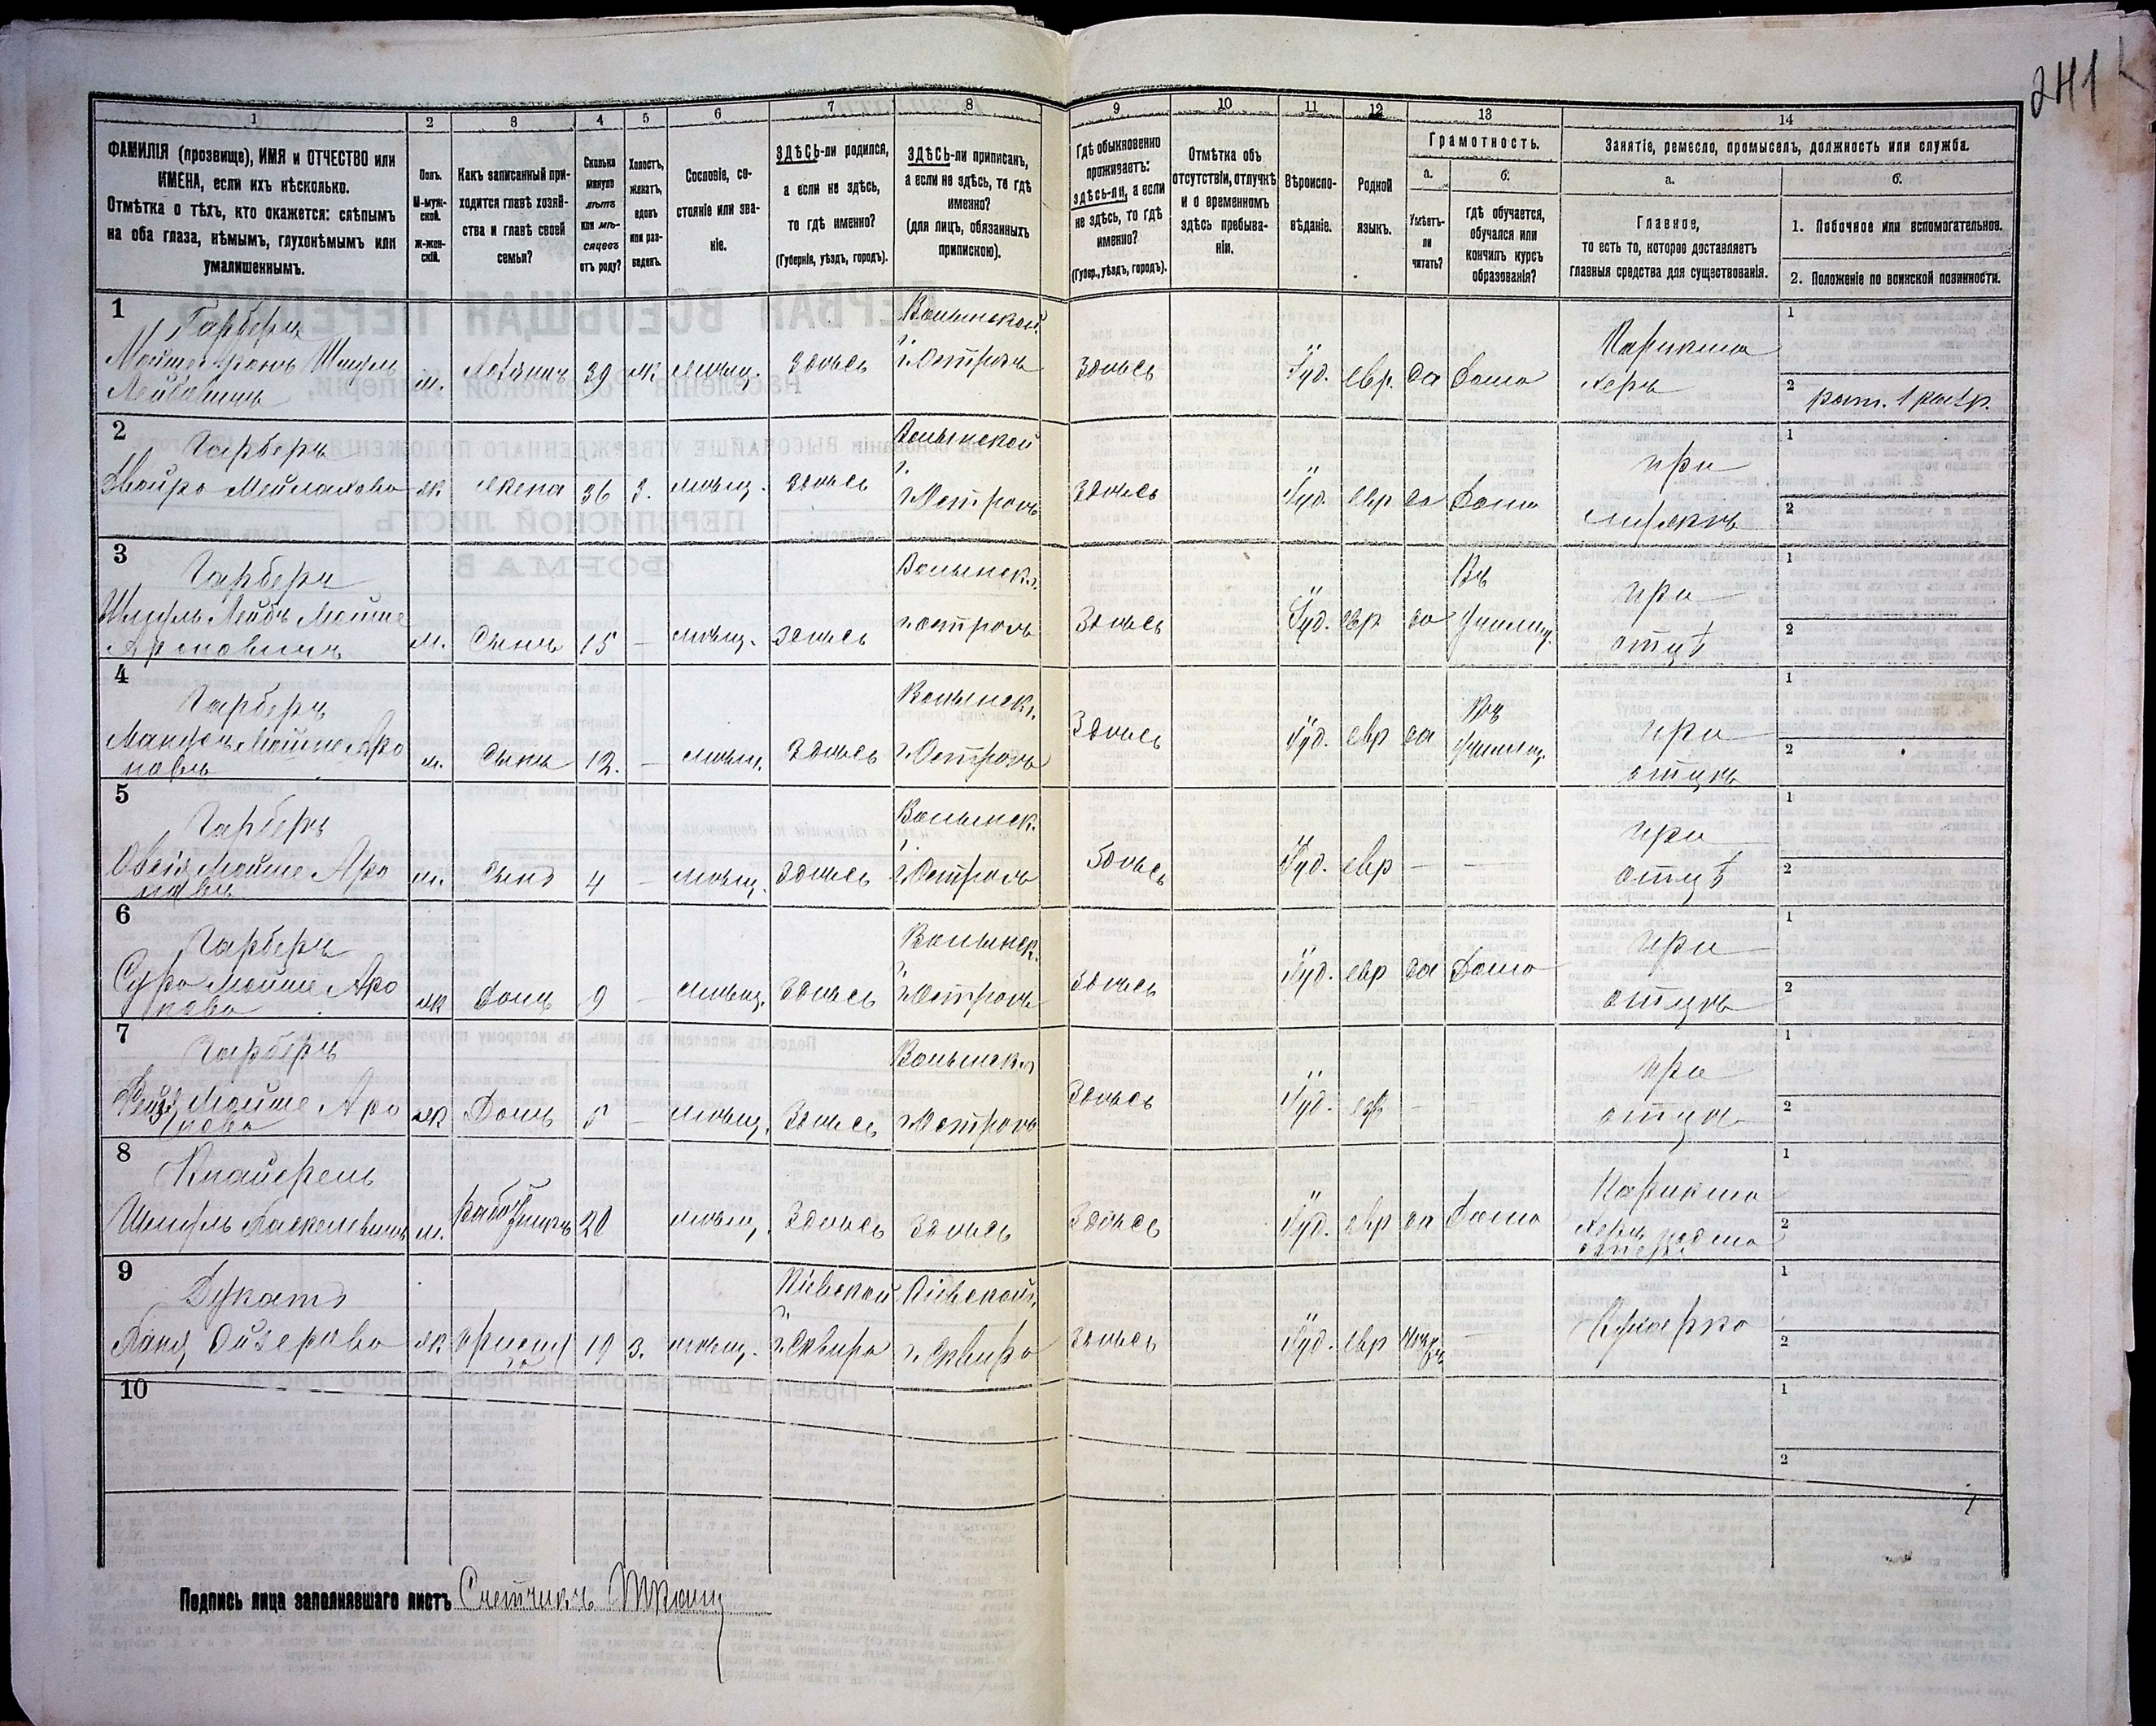 241
1 2 3 4 5 6 7 8 9 10 11 12 13 14
ФАМИЛІЯ (прозвище), ИМЯ и ОТЧЕСТВО или
ИМЕНА, если ихъ нѣсколько.
Отмѣтка о тѣхъ, кто окажется: слѣпымъ
на оба глаза, нѣмымъ, глухонѣмымъ или
умалишеннымъ.
Полъ.
М-муж-
ской.
Ж-жен-
скій.
Какъ записанный при-
ходится главѣ хозяй-
ства и главѣ своей
семьи?
Сколько
минуло
лѣтъ
или мѣ-
сяцевъ
отъ роду?
Холостъ,
женатъ,
вдовъ
или раз-
веденъ.
Сословіе, со-
стояніе или зва-
ніе.
ЗДѢСЬ-ли родился,
а если не здѣсь,
то гдѣ именно?
(Губернія, уѣздъ, городъ).
ЗДѢСЬ-ли приписанъ,
а если не здѣсь, то гдѣ
именно?
(для лицъ, обязанныхъ
припискою).
Гдѣ обыкновенно
проживаетъ:
здѣсь-ли, а если
не здѣсь, то гдѣ
именно?
(Губер., уѣздъ, городъ).
Отмѣтка объ
отсутствіи, отлучкѣ
и о временномъ
здѣсь пребыва-
ніи.
Вѣроиспо-
вѣданіе.
Родной
языкъ.
Грамотность.
а.
Умѣетъ-
ли
читать?
б.
Гдѣ обучается,
обучался или
кончилъ курсъ
образованія?
Занятіе, ремесло, промыселъ, должность или служба.
а.
Главное,
то есть то, которое доставляетъ
главныя средства для существованія.
б.
1. Побочное или вспомогательное.
2. Положеніе по воинской повинности.
1
Гарберъ
Мойше Аронъ Шмуль
Лейбовичъ
м. Хозяинъ 39 ж мѣщ. Здѣсь
Волынской
г. Острогъ
Здѣсь Іуд. евр. да Дома
Парикма
херъ
1
2 рат. 1 разр.
2
Гарберъ
Двойра Мейлахова
ж жена 36 з. мѣщ. здѣсь
Волынской
г.
г. Острогъ
Здѣсь Іуд. евр да Дома
при
мужѣ
1
2
3
Гарберъ
Шмуль Лейбъ Мойше
Ароновичъ
м. Сынъ 15 — мѣщ. Здѣсь
Волынск.
г. Острогъ
Здѣсь Іуд. евр да
Въ
Училищ.
при
отцѣ
1
2
4
Гарберъ
Мойше Аро
новъ
м. Сынъ 12. — мѣщ. Здѣсь
Волынск.
г. Острогъ
Здѣсь Іуд. евр да
Въ
Училищ.
при
отцѣ
1
2
5
Гарберъ
Овсія Мойше Аро
новъ
м. Сынъ 4 — мѣщ. Здѣсь
Волынск.
г.
г. Острогъ
Здѣсь Іуд. евр — —
при
отцѣ
1
2
6
Гарберъ
Сура Мойше Аро
нова
ж Дочь 9 — мѣщ. Здѣсь
Волынск.
г.
г. Острогъ
Здѣсь Іуд. евр да Дома
при
отцѣ
1
2
7
Гарберъ
Мойше Аро
нова
ж Дочь 5 — мѣщ. Здѣсь
Волынск.
г. Острогъ
Здѣсь Іуд. евр — —
при
отцѣ
1
2
8
Шмуль Хаскелевичъ
м. 20 мѣщ. Здѣсь Здѣсь
Здѣсь Іуд. евр да Дома
Парикма
херъ подма
1
2
9
Дукатъ
Хана Ойзерова
ж прислуга 19 з. мѣщ.
Кіевской
г.
г. Сквира
Кіевской г.
г. Сквира
Здѣсь Іуд. евр —
Кухарка
1
2
10
1
2
Подпись лица заполнявшаго листъ Счетчикъ